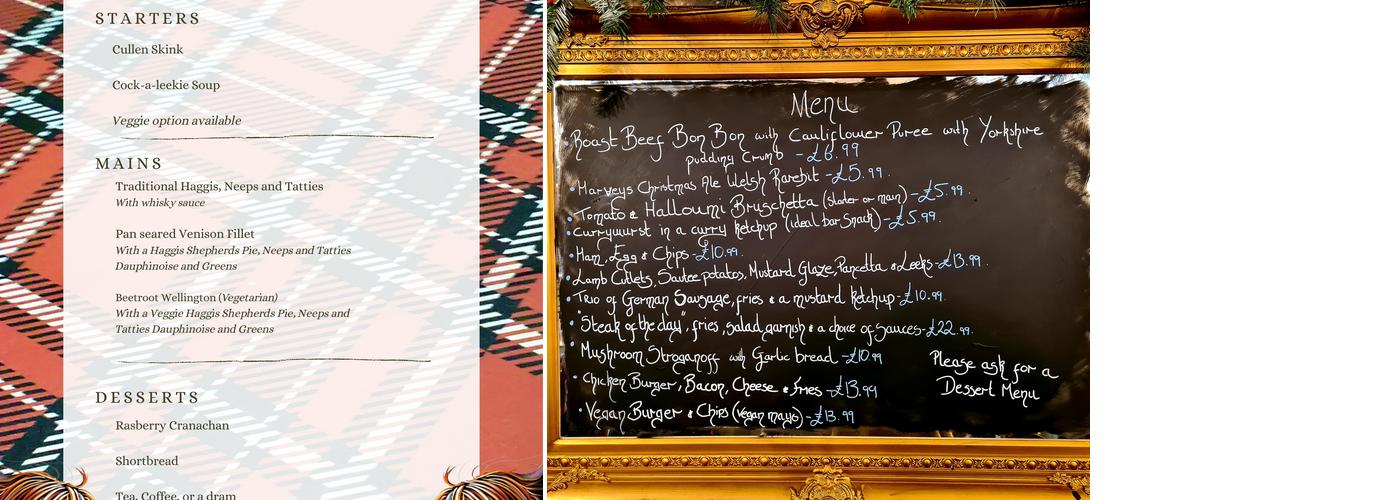 STARTERS
Cullen Skink
Cock-a-leekie Soup
Veggie option available
MAINS
Traditional Haggis, Neeps and Tatties
With whisky sauce
Pan seared Venison Fillet
With a Haggis Shepherds Pie, Neeps and Tatties
Dauphinoise and Greens
Beetroot Wellington (Vegetarian)
With a Veggie Haggis Shepherds Pie, Neeps and
Tatties Dauphinoise and Greens
DESSERTS
Rasberry Cranachan
Shortbread
Tea, Coffee, or a dram
Menu
Roast Beef Bon Bon with Cauliflower Puree with Yorkshire
pudding Crumb - £6.99
• Harveys Christmas Ale Welsh Rarebit - £5.99.
• Tomato & Halloumi Bruschetta (starter or main) - £5.99.
• Currywurst in a curry ketchup (ideal bar snack) - £5.99.
• Ham, Egg & Chips - £10.99.
• Lamb Cutlets, Sautee potatos, Mustard Glaze, Pancetta & Leeks - £13.99.
• Trio of German Sausage, fries & a mustard ketchup - £10.99.
• "Steak of the day", fries, salad, garnish & a choice of sauces - £22.99.
• Mushroom Stroganoff with Garlic bread - £10.99
• Chicken Burger, Bacon, Cheese & fries - £13.99
• Vegan Burger & Chips (vegan mayo) - £13.99
Please ask for a
Dessert Menu